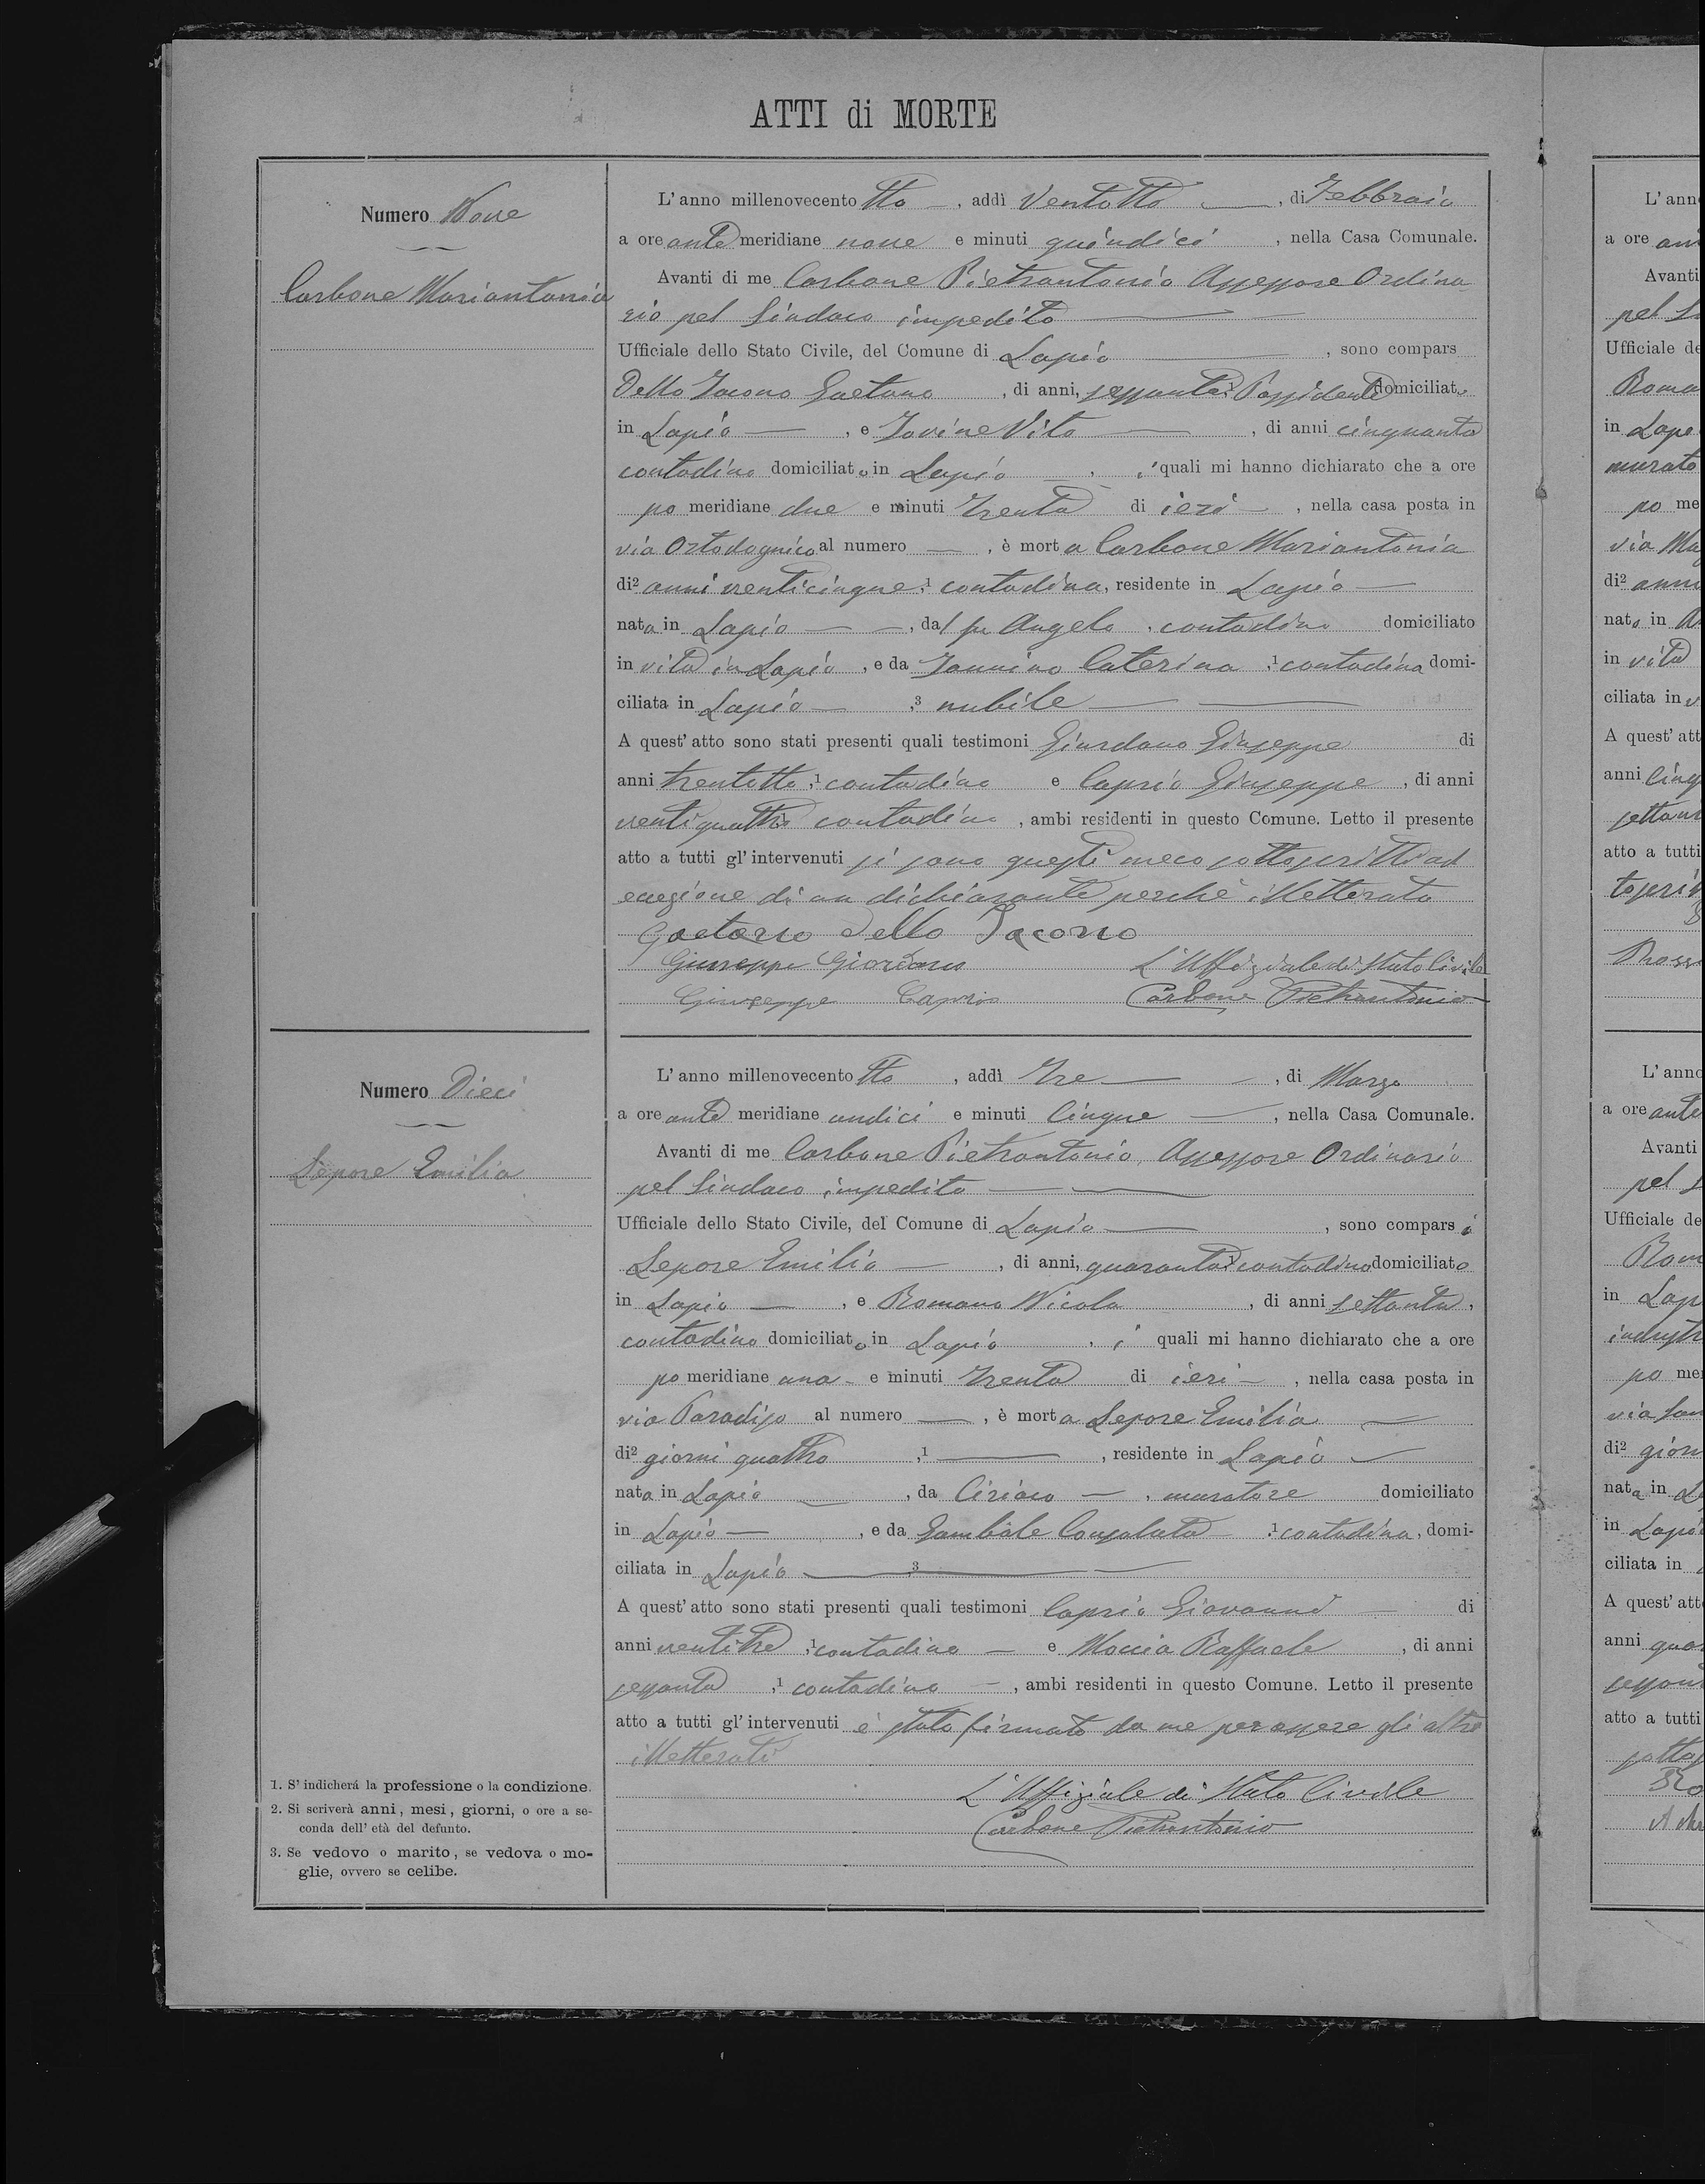 ATTI di MORTE
Numero Nove
Carbone Mariantonia
L'anno millenovecento tto, addì Ventotto, di Febbraio
a ore ante meridiane nove e minuti quindici, nella Casa Comunale.
Avanti di me Carbone Pietrantonio Assessore Ordina
rio pel Sindaco impedito
Ufficiale dello Stato Civile, del Comune di Lapio, sono compars
Dello Iacono Gaetano, di anni, sessanta,1 Possidente domiciliato
in Lapio, e Iovine Vito, di anni cinquanta
contadino domiciliato in Lapio, i quali mi hanno dichiarato che a ore
po meridiane due e minuti trenta di ieri, nella casa posta in
via al numero, è morta Carbone Mariantonia
di2 anni venticinque,1 contadina, residente in Lapio
nata in Lapio, dal fu Angelo, contadino domiciliato
in vita in Lapio, e da Iannino Caterina,1 contadina domi-
ciliata in Lapio,3 nubile
A quest'atto sono stati presenti quali testimoni Giordano Giuseppe di
anni trentotto,1 contadino e Caprio Giuseppe, di anni
ventiquattro contadino, ambi residenti in questo Comune. Letto il presente
atto a tutti gl'intervenuti si sono questi meco sottoscritti ad
eccezione di un dichiarante perchè illetterato
Gaetano Dello Iacono
Giuseppe Giordano L'Uffiziale di Stato Civile
Giuseppe Caprio Carbone Pietrantonio
Numero Dieci
Lepore Emilia
L'anno millenovecento tto, addì Tre, di Marzo
a ore ante meridiane undici e minuti Cinque, nella Casa Comunale.
Avanti di me Carbone Pietrantonio, Assessore Ordinario
pel Sindaco impedito
Ufficiale dello Stato Civile, del Comune di Lapio, sono comparsi
Lepore Emilio, di anni, quaranta,1 contadino domiciliato
in Lapio, e Romano Nicola, di anni settanta,
contadino domiciliato in Lapio, i quali mi hanno dichiarato che a ore
po meridiane una e minuti trenta di ieri, nella casa posta in
via Paradiso al numero, è morta Lepore Emilia
di2 giorni quattro,1, residente in Lapio
nata in Lapio, da Ciriaco, muratore domiciliato
in Lapio, e da Gambale Consolata,1 contadina, domi-
ciliata in Lapio 3
A quest'atto sono stati presenti quali testimoni Caprio Giovanni di
anni ventitre,1 contadino e Moccia Raffaele, di anni
sessanta,1 contadino, ambi residenti in questo Comune. Letto il presente
atto a tutti gl'intervenuti è stato firmato da me per essere gli altri
illetterati
L'Uffiziale di Stato Civile
Carbone Pietrantonio
1. S'indicherá la professione o la condizione.
2. Si scriverà anni, mesi, giorni, o ore a se-
conda dell'età del defunto.
3. Se vedovo o marito, se vedova o mo-
glie, ovvero se celibe.